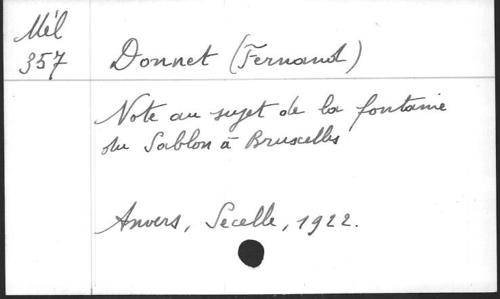 Mél
357
Donnet (Fernand)
Note au sujet de la fontaine
du Sablon à Bruxelles
Anvers, Secelle, 1922.